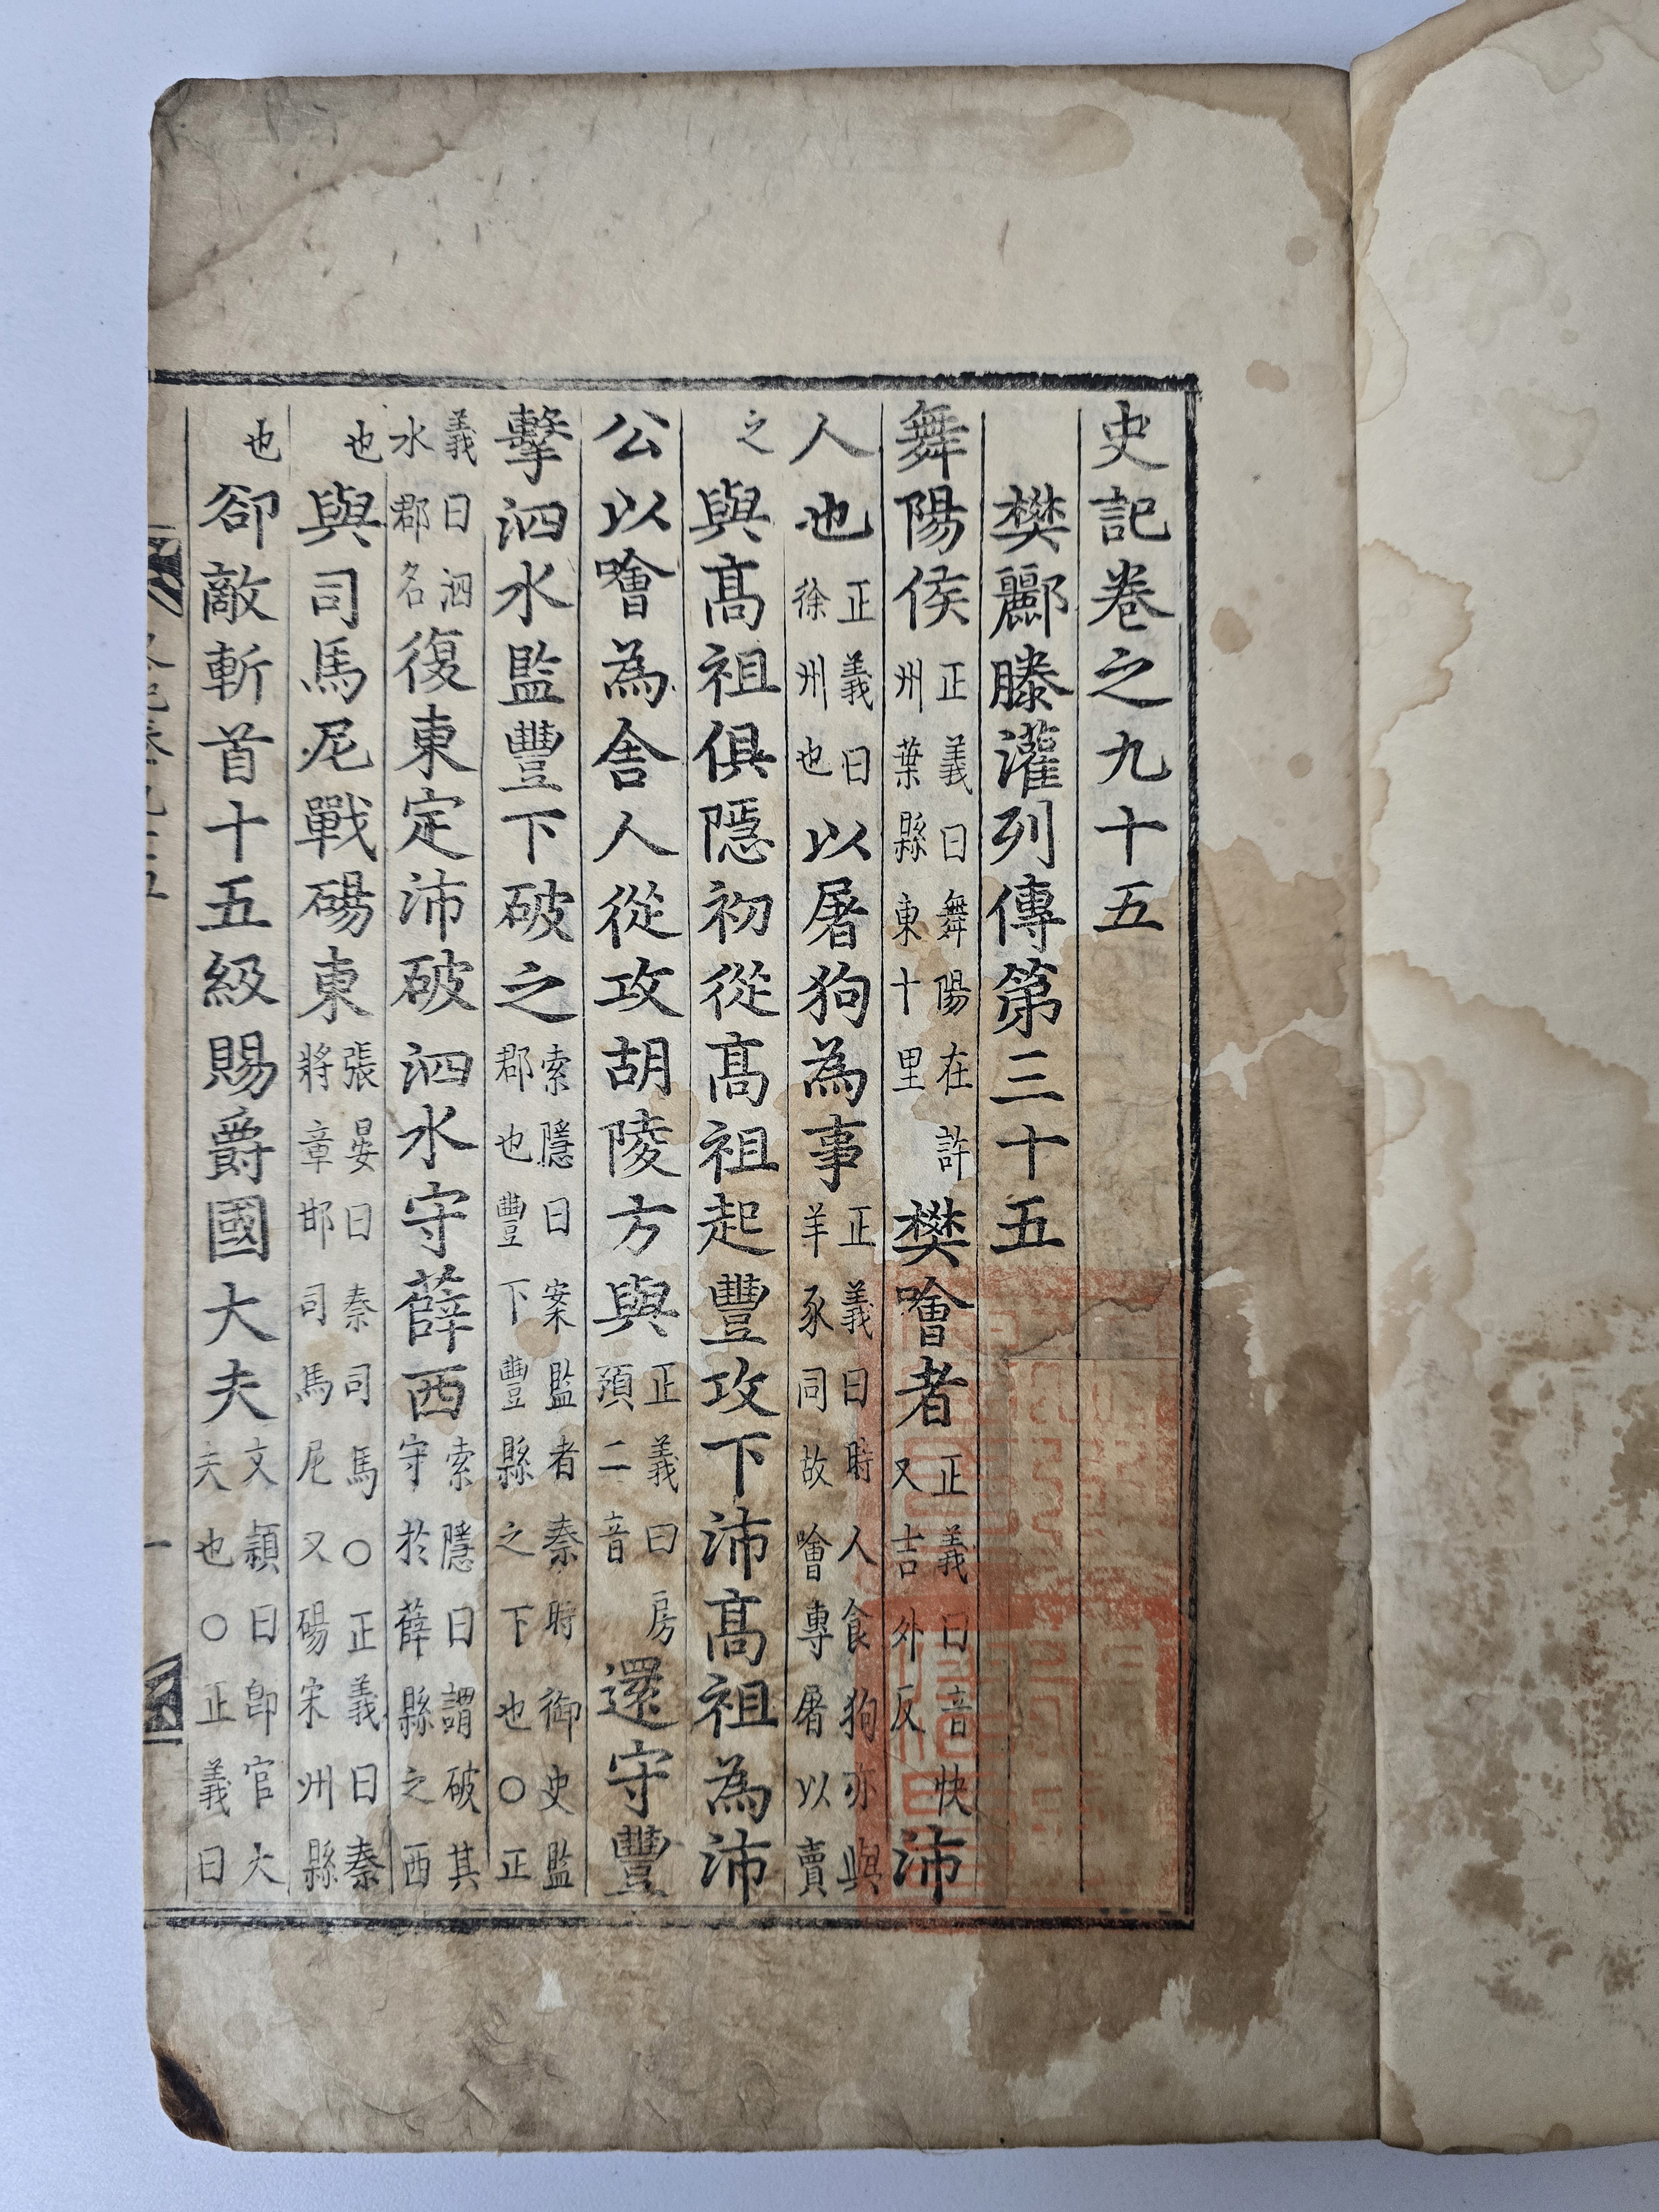 史記卷之九十五
樊酈滕灌列傳第三十五
舞陽侯正義曰舞陽在許州葉縣東十里樊噲者正義曰音快又吉外反沛
人也正義曰徐州也以屠狗為事正義曰時人食狗亦與羊豕同故噲專屠以賣
之與髙祖俱隱初從髙祖起豐攻下沛髙祖為沛
公以噲為舎人從攻胡陵方與正義曰房預二音還守豐
擊泗水監豐下破之索隱曰案監者秦時御史監郡也豐下豐縣之下也○正
義曰泗水郡名復東定沛破泗水守薛西索隱曰謂破其守於薛縣之西
也與司馬𡰥戰碭東張晏曰秦司馬○正義曰秦將章邯司馬𡰥又碭宋州縣
也卻敵斬首十五級賜爵國大夫文頴曰卽官大夫也○正義曰